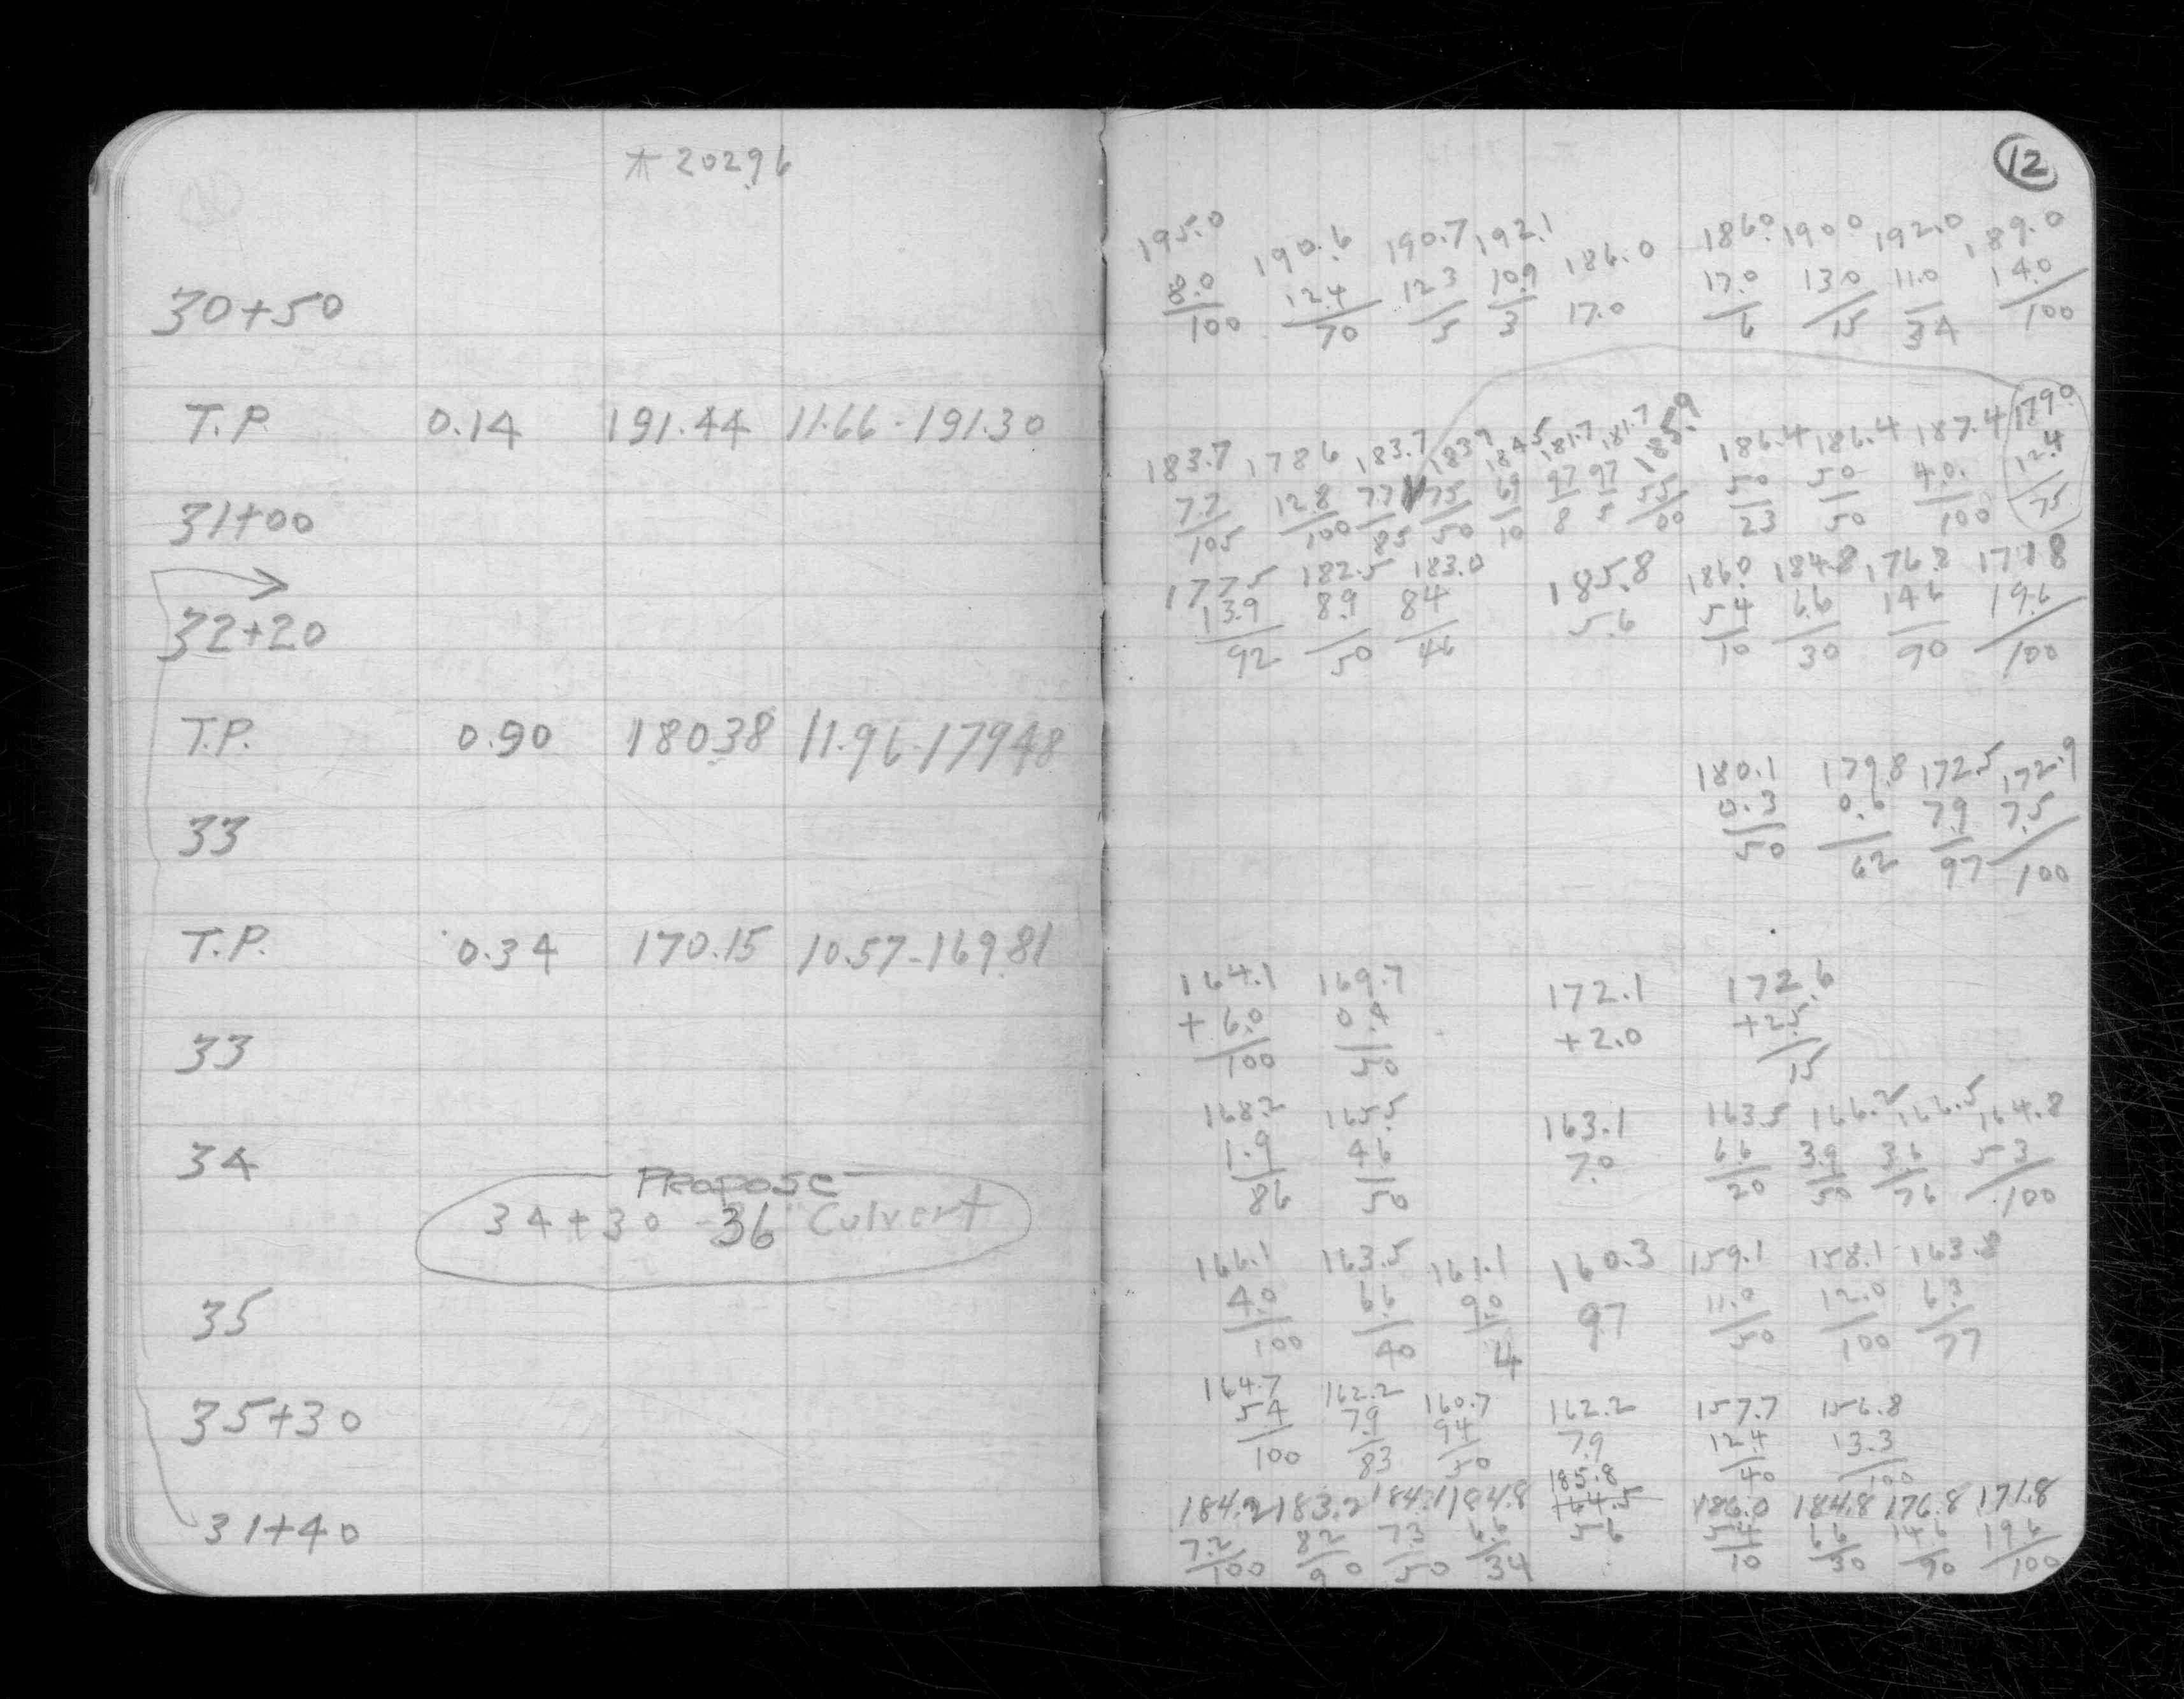 ⊼ 202.96
12
195.0 190.6 190.7 192.1 186.0 186.0 190.0 192.0 189.0
30+50 8.0/100 12.4/70 12.3/5 10.9/3 17.0 17.0/6 13.0/15 11.0/34 14.0/100
T.P. 0.14 191.44 11.66 - 191.30
183.7 178.6 183.7 183.9 184.5 181.7 181.7 185.9 186.4 186.4 187.4 179.0
31+00 7.7/105 12.8/100 7.7/85 7.5/50 6.9/10 9.7/8 9.7/5 5.5/00 5.0/23 5.0/50 4.0/100 12.4/75
177.5 182.5 183.0 185.8 186.0 184.8 176.8 171.8
32+20 13.9/92 8.9/50 8.4/46 5.6 5.4/10 6.6/30 14.6/90 19.6/100
T.P. 0.90 180.38 11.96 - 179.48
180.1 179.8 172.5 172.9
33 0.3/50 0.6/62 7.9/97 7.5/100
T.P. 0.34 170.15 10.57 - 169.81
164.1 169.7 172.1 172.6
33 +6.0/100 0.4/50 +2.0 +2.5/15
168.2 165.5 163.1 163.5 166.2 166.5 164.8
34 1.9/86 4.6/50 7.0 6.6/20 3.9/50 3.6/76 5.3/100
Propose
34+30 - 36" Culvert
166.1 163.5 161.1 160.3 159.1 158.1 163.8
35 4.0/100 6.6/40 9.0/4 9.7 11.0/50 12.0/100 6.3/77
164.7 162.2 160.7 162.2 157.7 156.8
35+30 5.4/100 7.9/83 9.4/50 7.9 12.4/40 13.3/100
184.2 183.2 184.1 184.8 185.8 186.0 184.8 176.8 171.8
31+40 7.2/100 8.2/90 7.3/50 6.6/34 5.6 5.4/10 6.6/30 14.6/90 19.6/100